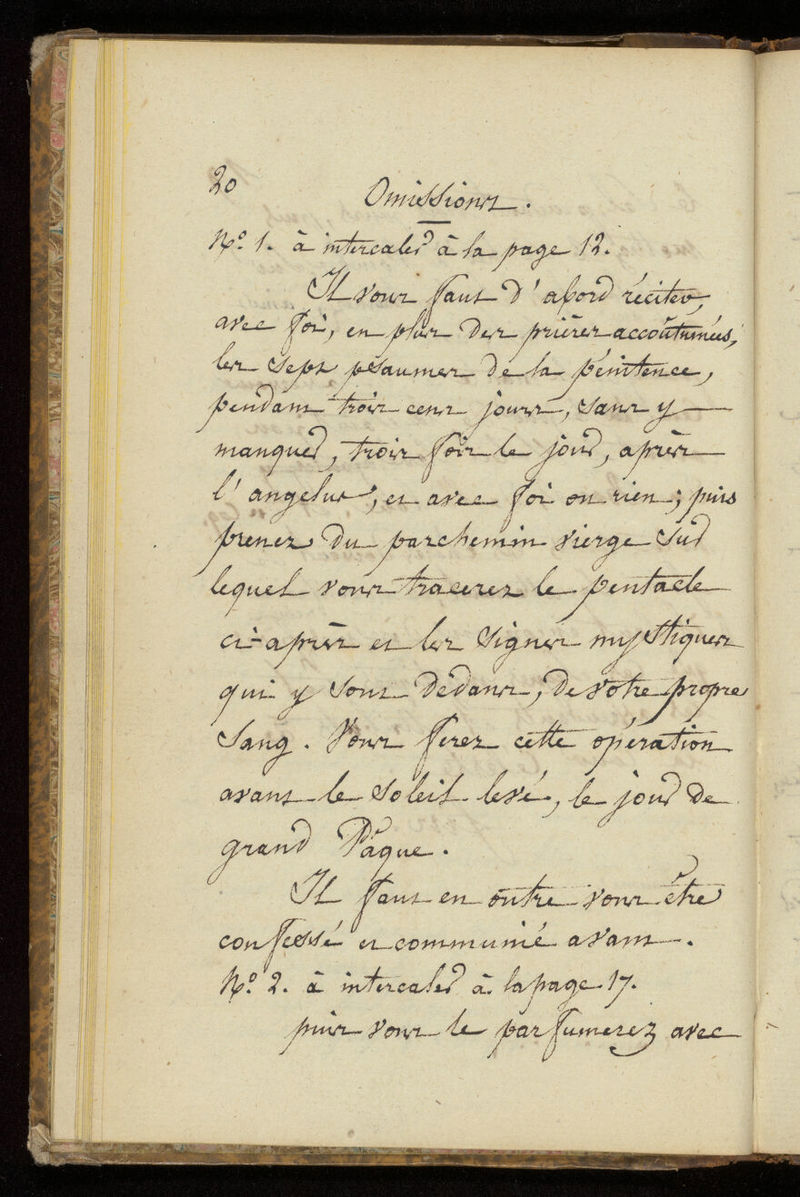 20
Omissions.
N.º 1. à intercaler à la page 12.
Il vous faut d'abord réciter,
avec foi, en plus des prières accoutumées,
les sept pseaumes de la pénitence,
pendant trois cens jours, sans y
manquer, trois fois le jour, après
l'angelus, et avec foi ou rien ; puis
prenez du parchemin vierge sur
lequel vous tracerez le pentacle
ci-après et les signes mystiques
qui y sont dedans, de votre propre
sang. Vous ferez cette opération
avant le soleil levé, le jour de
grand Pâque.
Il faut en outre vous être
confessé et communié avant.
N.º 2. à intercaler à la page 17.
puis vous le parfumerez avec